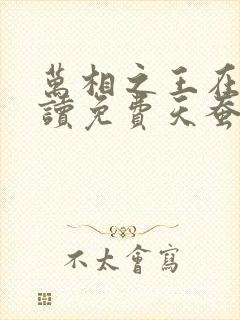 萬相之王在
讀免費天蚕
不太會寫